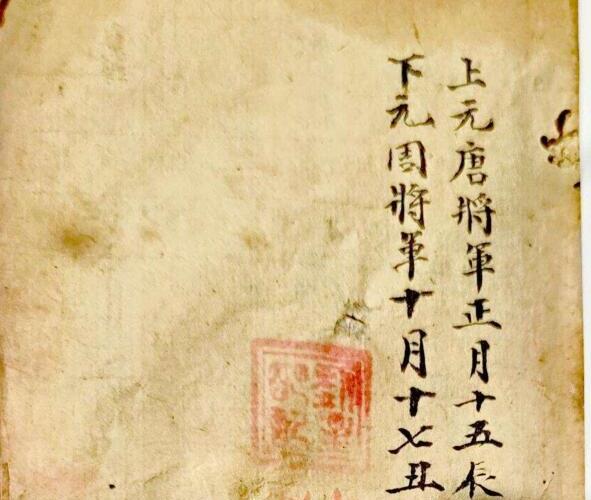 上元唐將軍正月十五辰
下元周將軍十月十七丑